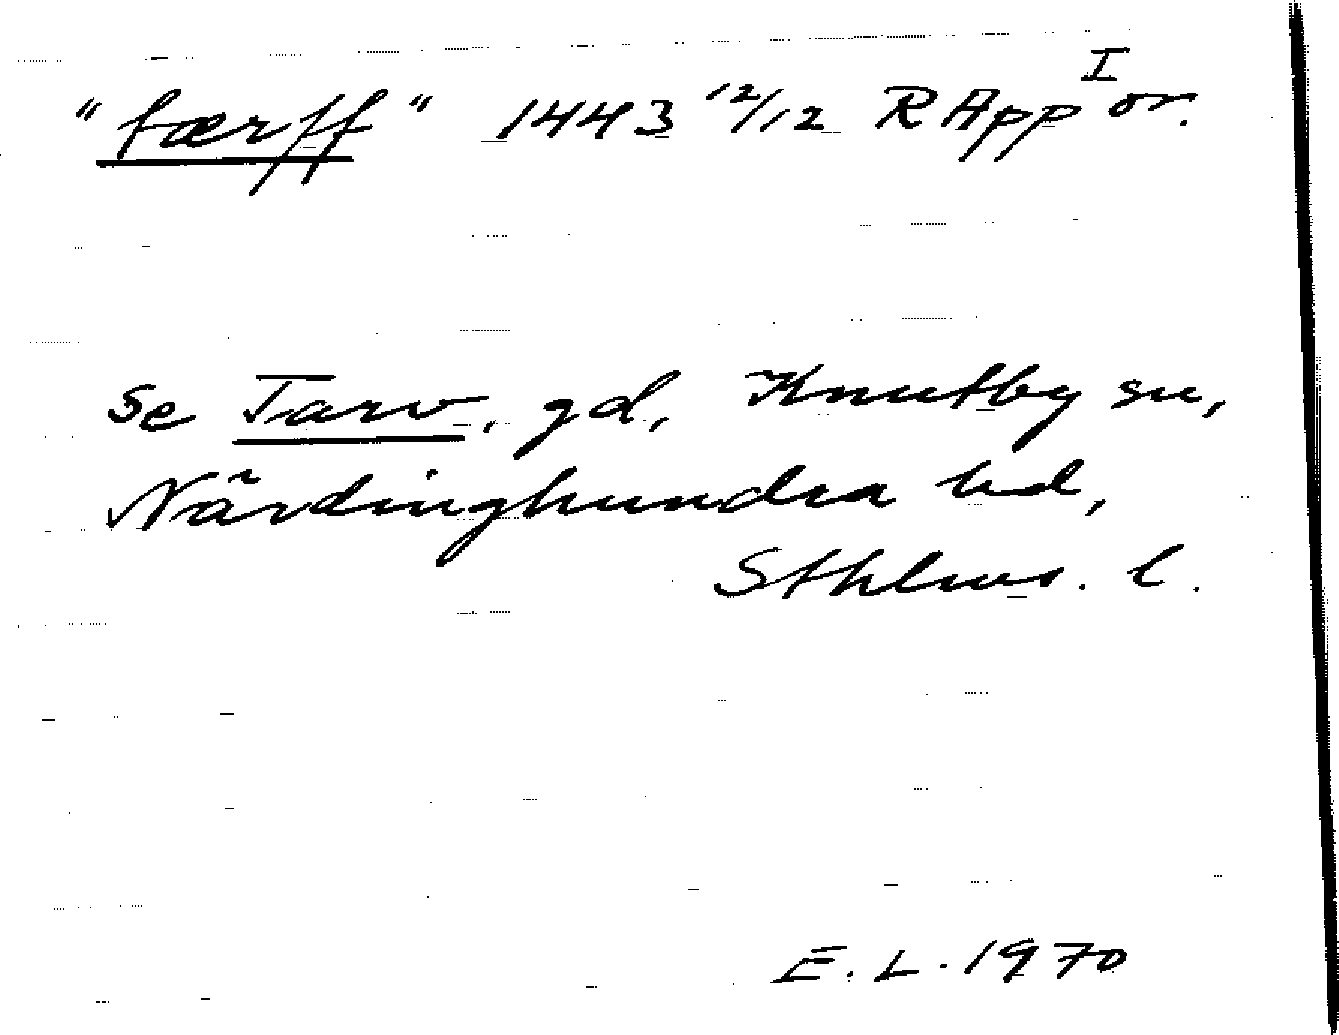 "tærff" 1443 12/12 RApp I or.
Se Tarv, gd, Knutby sn,
Närdinghundra hd,
Sthlms. l.
E. L. 1970